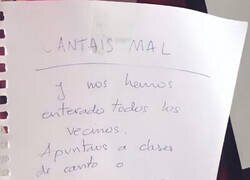 CANTAIS MAL
y nos hemos
enterado todos los
vecinos.
Apuntaos a clases
de canto o